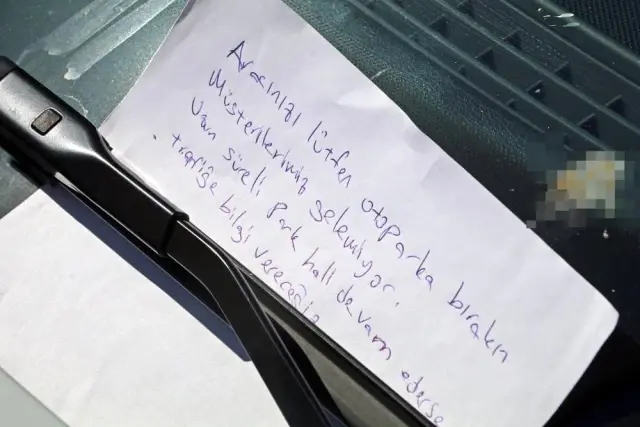 Aracınızı lütfen otoparka bırakın
Müşterilerimiz gelemiyor.
Uzun süreli Park hali devam ederse
trafiğe bilgi vereceğiz